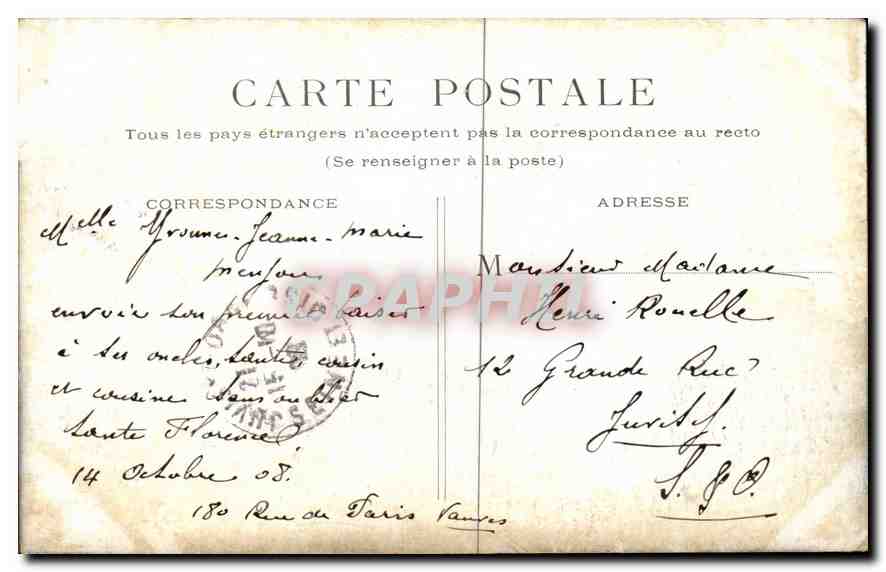 CARTE POSTALE
Tous les pays étrangers n'acceptent pas la correspondance au recto
(Se renseigner à la poste)
CORRESPONDANCE
Melle Yvonne-Jeanne-Marie
envoie son premier baiser
à ses oncles, tante, cousin
et cousine sans oublier
tante Florence
14 Octobre 08.
180 Rue de Paris Vanves
ADRESSE
Monsieur Madame
Henri Rouelle
12 Grande Rue
Juvisy.
S. & O.
CPAPHIL